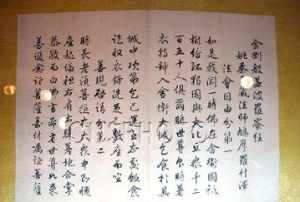 金剛般若波羅蜜經
姚秦三藏法師鳩摩羅什譯
法會因由分第一
如是我聞一時佛在舍衛國祇
樹給孤獨園與大比丘眾千二
百五十人俱爾時世尊食時著
衣持鉢入舍衛大城乞食於其
城中次第乞已還至本處飯食
訖收衣鉢洗足已敷座而坐
善現啟請分第二
時長老須菩提在大眾中即從
座起偏袒右肩右膝著地合掌
恭敬而白佛言希有世尊如來
善護念諸菩薩善付囑諸菩薩